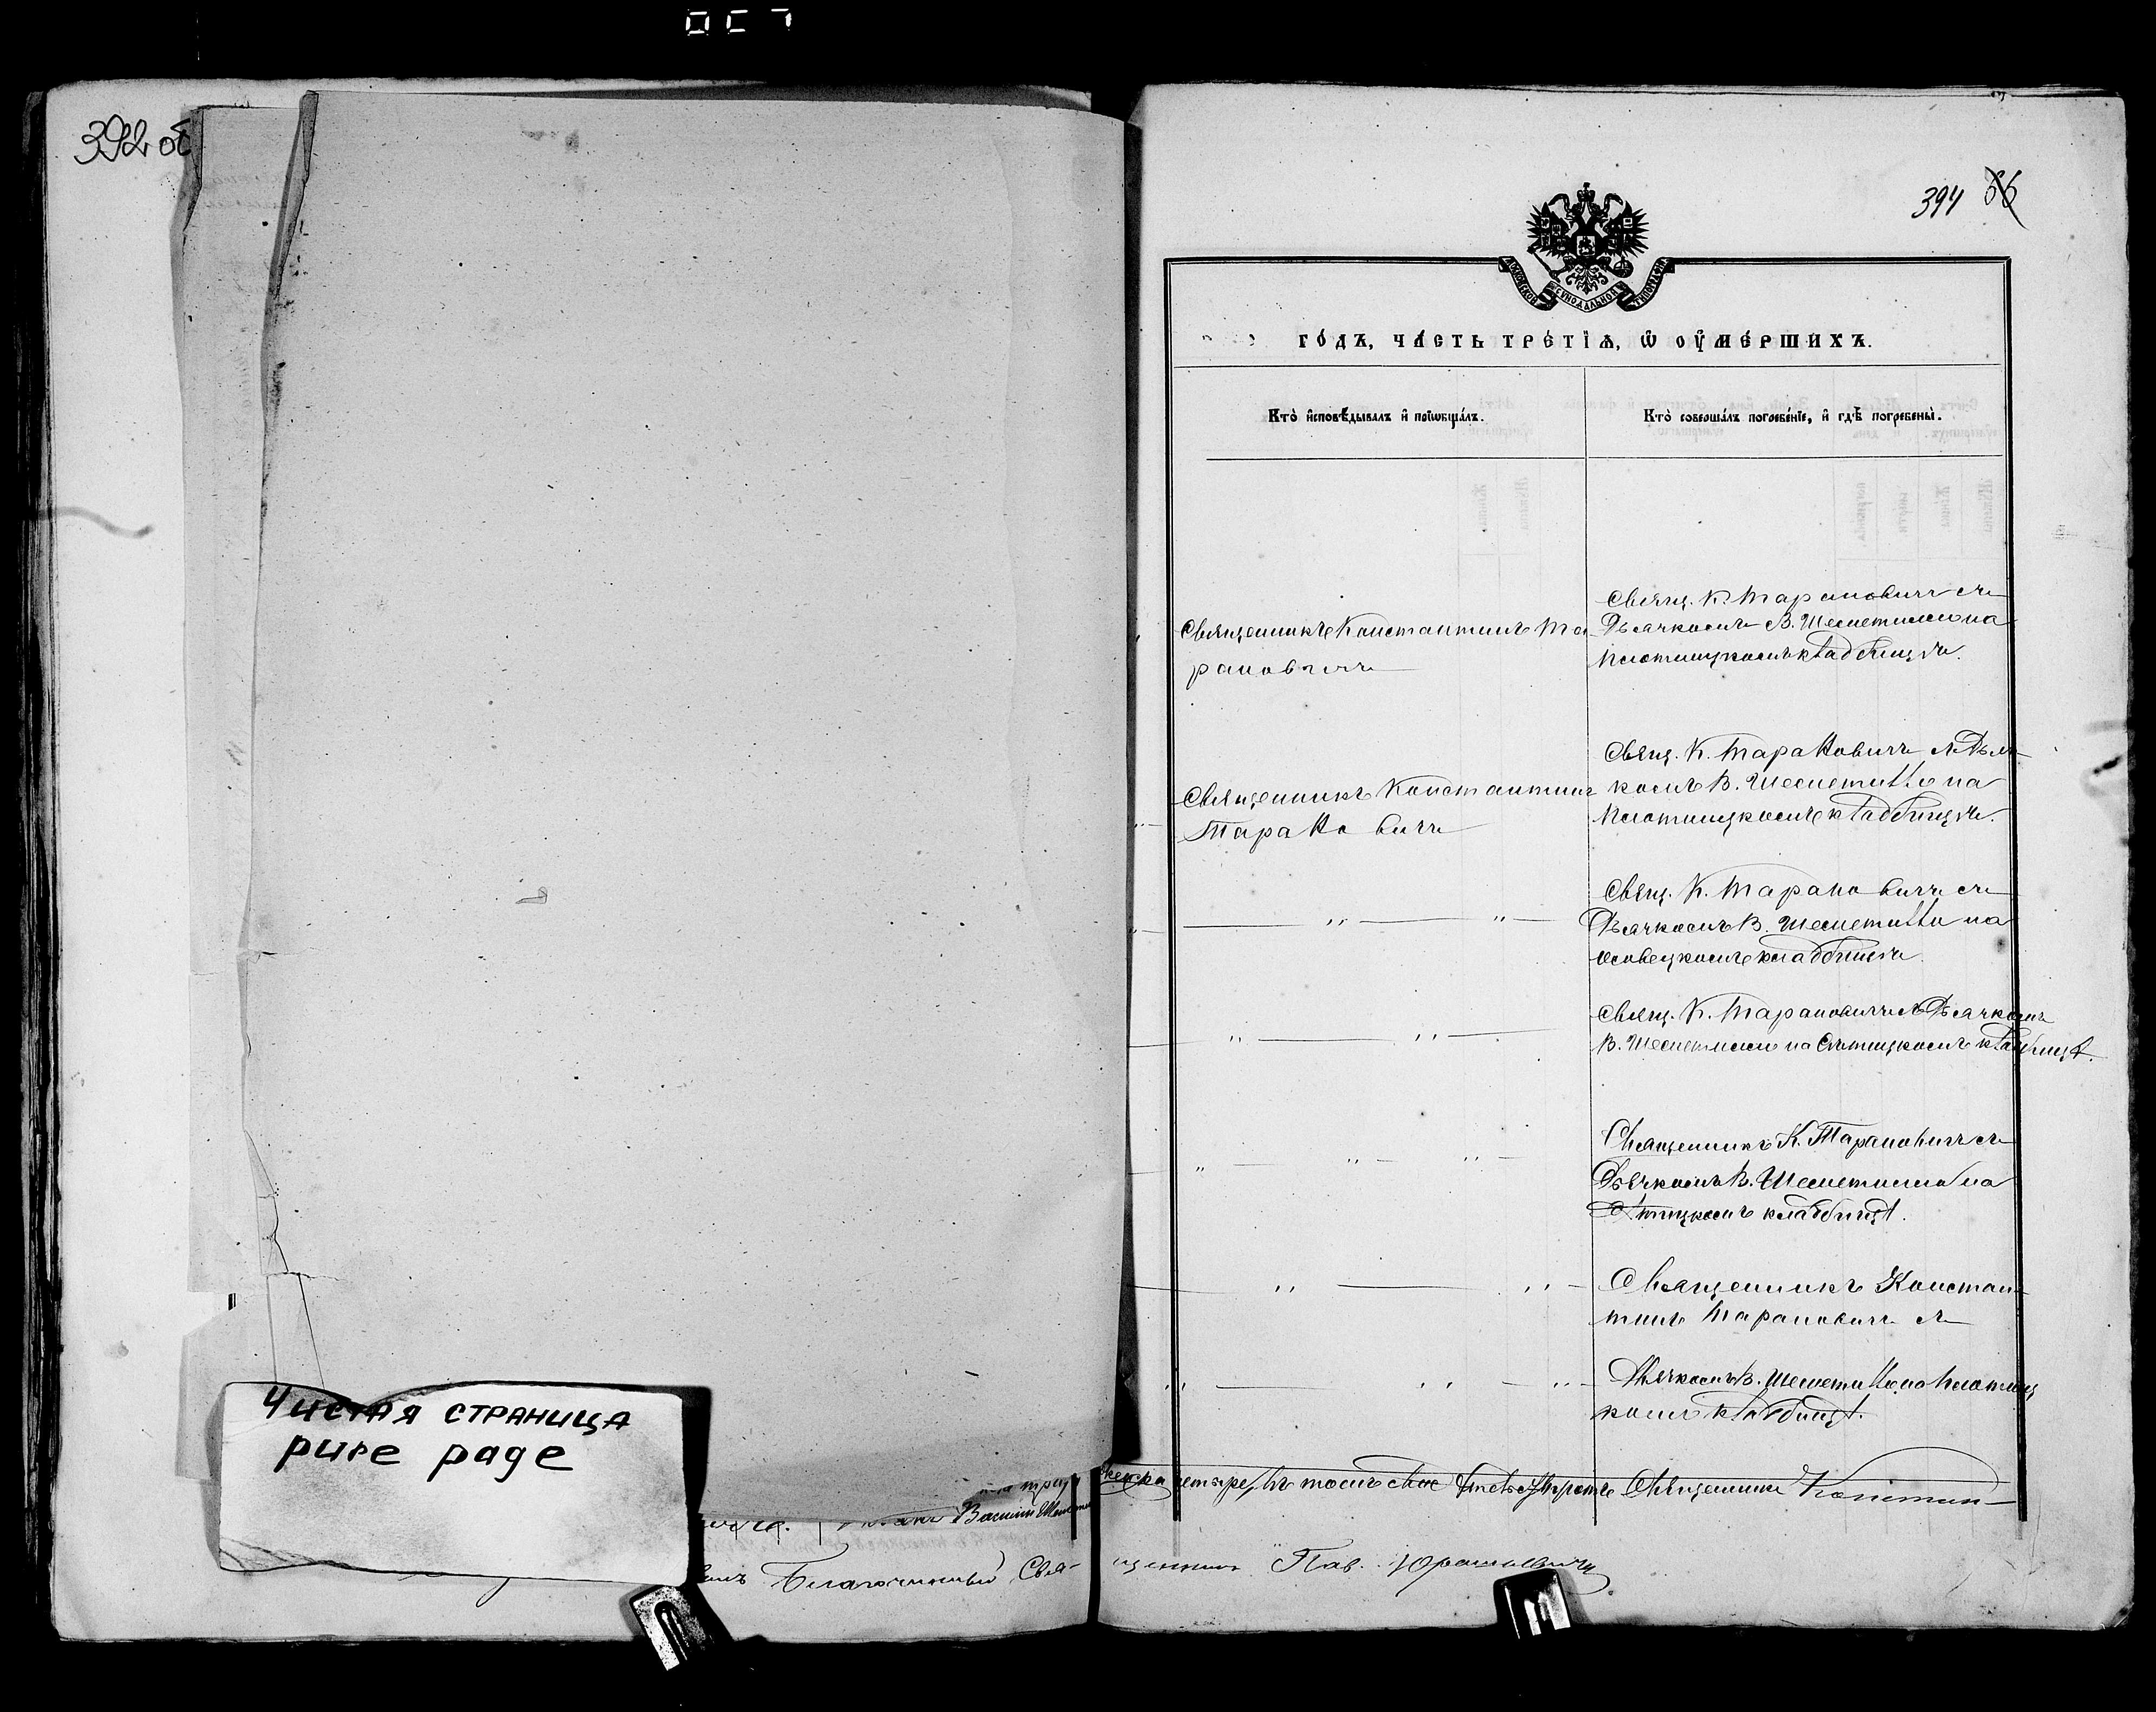 392 об
394 66
МОСКОВСКОЙ СѴНОДАЛЬНОЙ ТИПОГРАФІИ
го́дъ, ча́сть тре́тїѧ, ѡ҆ ᲂу҆ме́ршихъ.
Кто̀ и҆сповѣ́дывалъ и҆ прїѡбща́лъ.
Кто̀ соверша́лъ погребе́нїе, и҆ гдѣ̀ погребены̀.
Священникъ Константинъ Та
рановичъ
Свящ. К. Тарановичъ съ
Дьячкомъ В. Шеметилло на
Плотницкомъ кладбищѣ.
Священникъ Константинъ
Тарановичъ
Свящ. К. Тарановичъ съ Дьяч
комъ В. Шеметилло на
Плотницкомъ кладбищѣ.
Свящ. К. Тарановичъ съ
Дьячкомъ В. Шеметилло на
Осовецкомъ кладбищѣ.
Свящ. К. Тарановичъ съ Дьячкомъ
В. Шеметилло на кладбищѣ.
Священникъ К. Тарановичъ съ
Дьячкомъ В. Шеметилло на
кладбищѣ.
Священникъ Констан-
тинъ Тарановичъ съ
Дьячкомъ В. Шеметилло на Плотниц
комъ кладбищѣ.
Священникъ Констан-
Василій
Благочинный Свя-
щенникъ Пав. Юрашкевичъ
Чистая страница
pure page